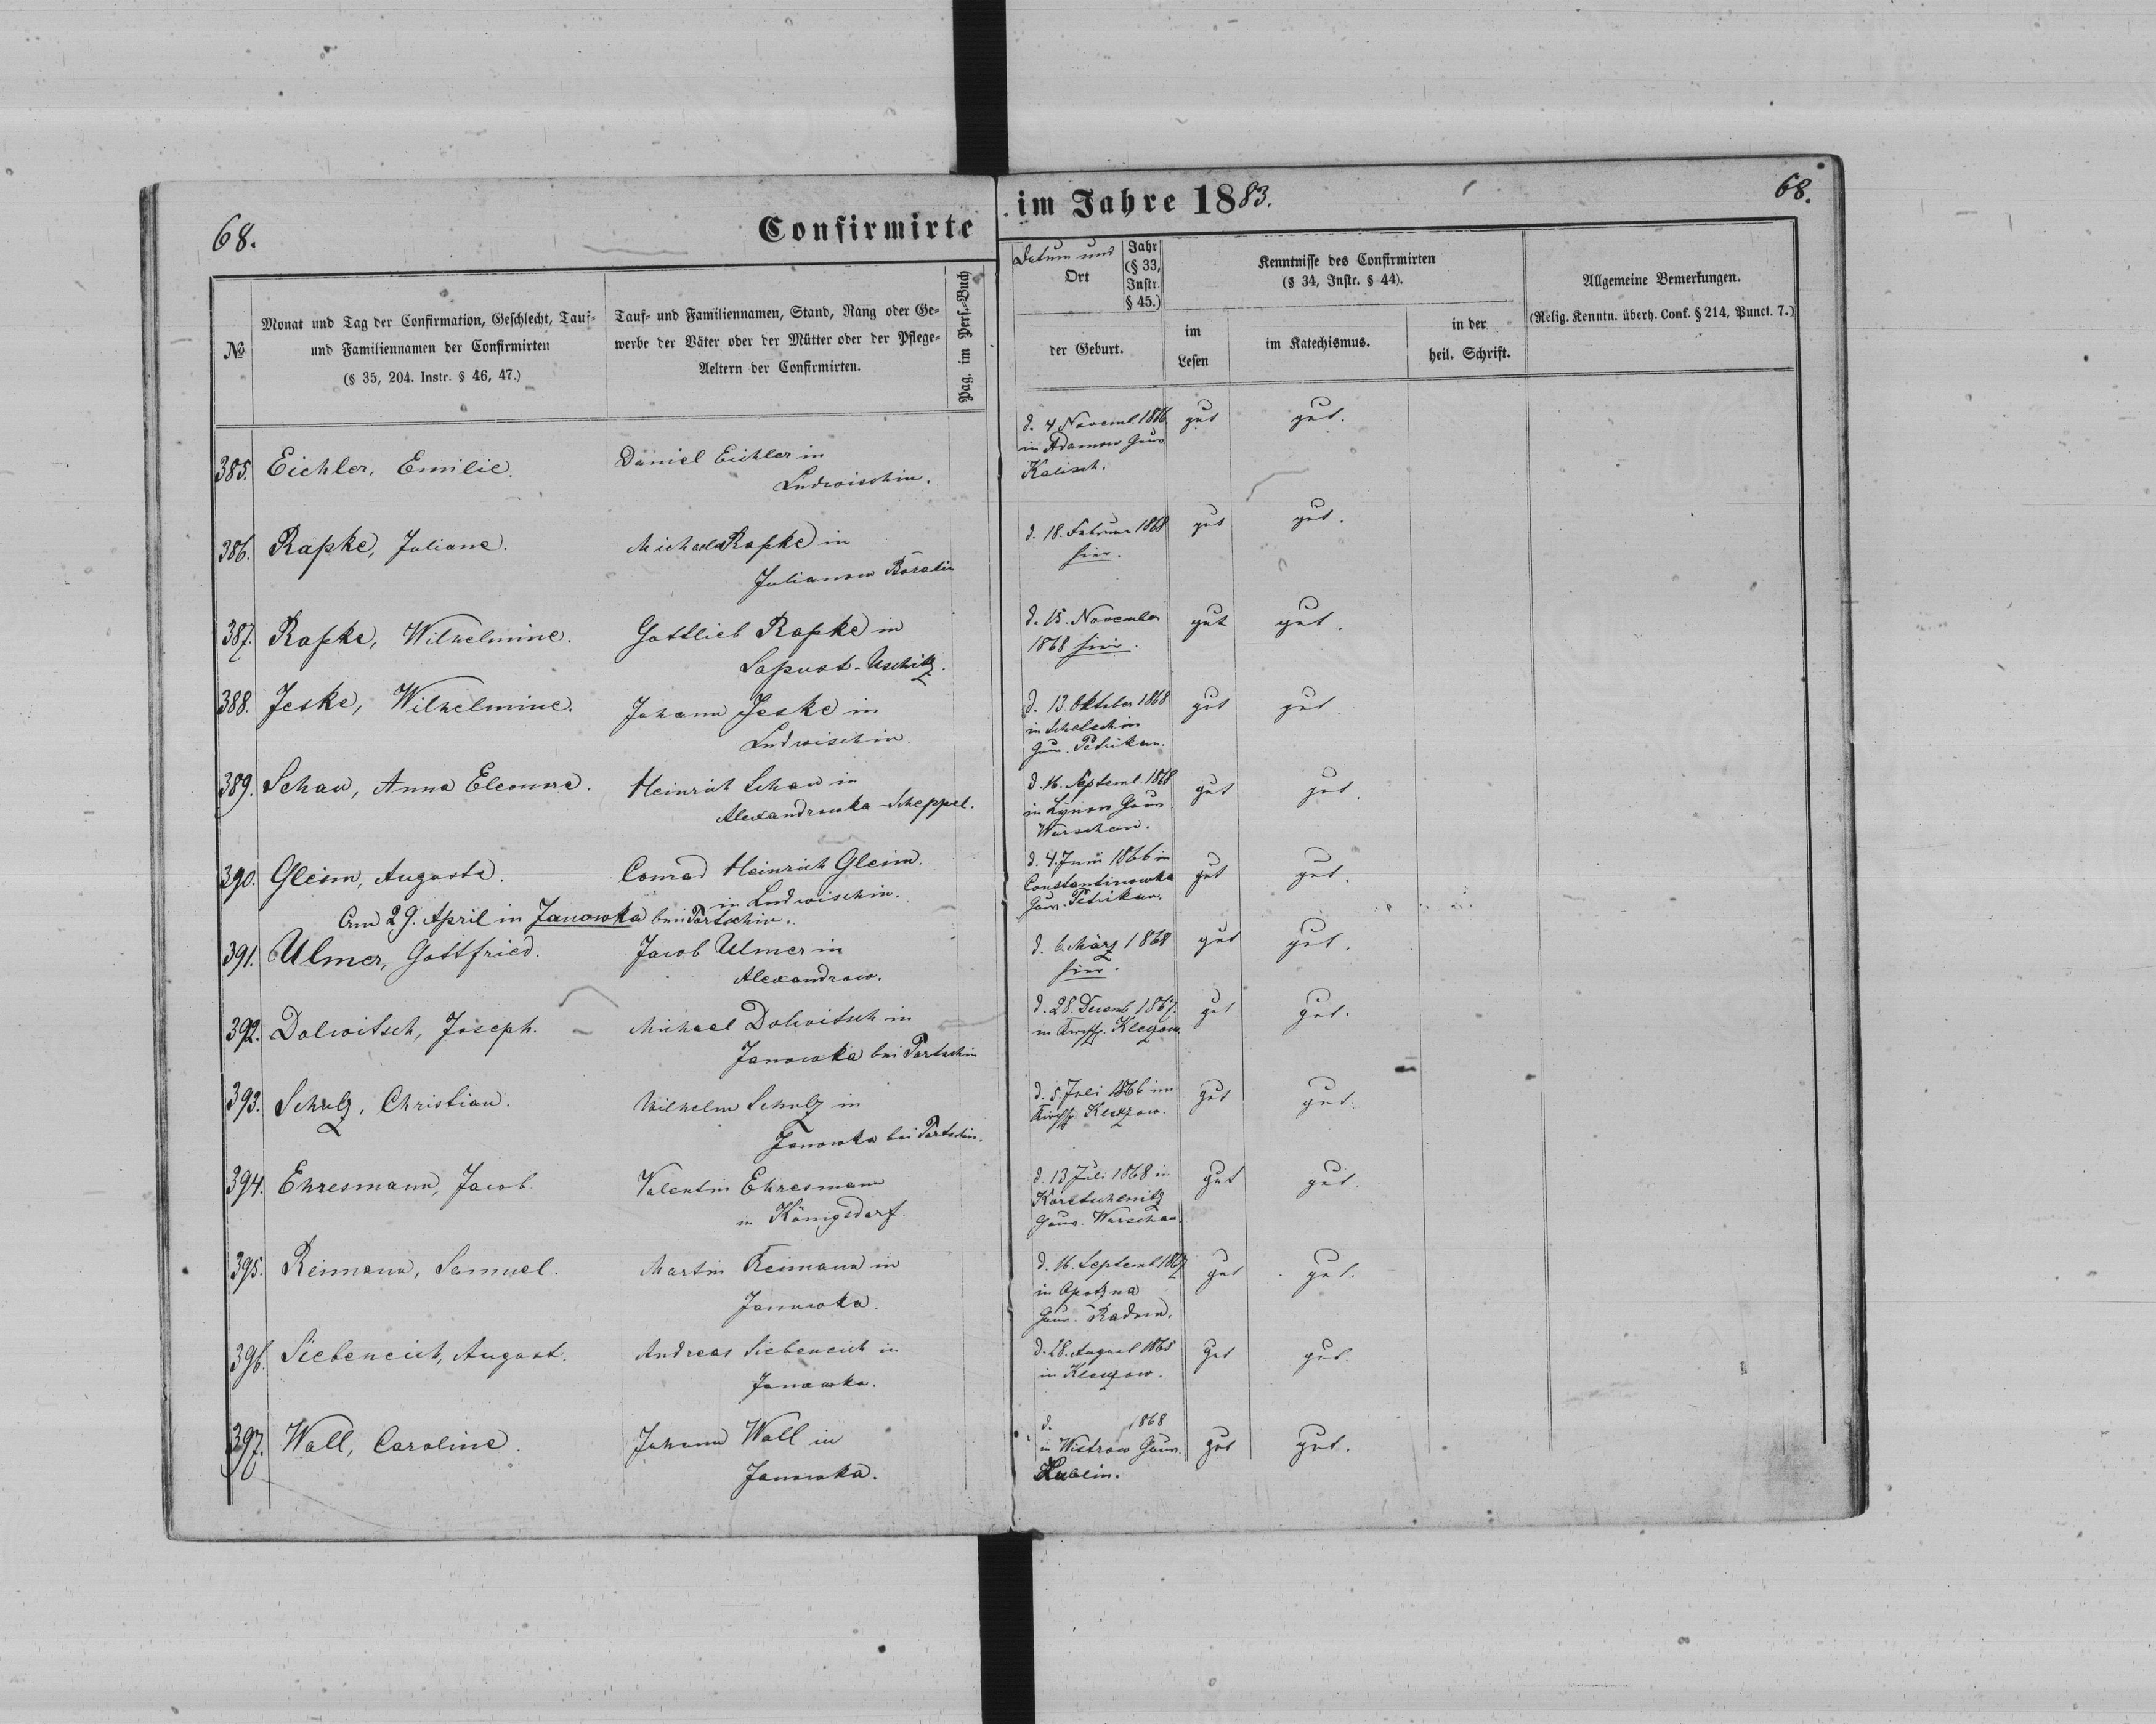 68.
Confirmirte
im Jahre 1883.
68.
№
Monat und Tag der Confirmation, Geschlecht, Tauf-
und Familiennamen der Confirmirten
(§ 35, 204. Instr. § 46, 47.)
Tauf- und Familiennamen, Stand, Rang oder Ge-
werbe der Väter oder der Mütter oder der Pflege-
Aeltern der Confirmirten.
Pag. im Pers.-Buch
Datum und
Ort
Jahr
(§ 33,
Instr.
§ 45.)
der Geburt.
Kenntnisse des Confirmirten
(§ 34, Instr. § 44).
im
Lesen
im Katechismus.
in der
heil. Schrift.
Allgemeine Bemerkungen.
(Relig. Kenntn. überh. Conf. § 214, Punct. 7.)
385. Eichler, Emilie. Daniel Eichler in
Ludwischin.
d. 4 Novemb. 1866 gut gut.
in Adamow Gouv
Kalisch.
386. Rapke, Juliane. Michael Rapke in
Julianow Boratin
d. 18. Februar 1868 gut gut.
hier.
387. Rapke, Wilhelmine. Gottlieb Rapke in
Sapust-Uschitz.
d. 15. November gut gut.
1868 hier.
388. Jeske, Wilhelmine. Johann Jeske in
Ludwischin.
d. 13. Oktober 1868 gut gut.
in
Gouv. Petrikau.
389. Schau, Anna Eleonore. Heinrich Schau in
Alexandrowka-Scheppel.
d. 16. Septemb. 1868 gut gut.
in Gouv
Warschau.
390. Gleim, Auguste. Conrad Heinrich Gleim
in Ludwischin.
d. 4. Juni 1866 in gut gut.
Constantinowka
Gouv. Petrikau.
Am 29. April in Janowka bei Tortschin.
391. Ulmer, Gottfried. Jacob Ulmer in
Alexandrow.
d. 6. März 1868 gut gut.
hier.
392. Dolwitsch, Joseph. Michael Dolwitsch in
Janowka bei Tortschin
d. 28. Decemb 1867. gut gut.
in Kirchsp. Kleczow
393. Schulz, Christian. Wilhelm Schulz in
Janowka bei Tortschin.
d. 5. Juli 1866 im gut gut.
Kirchsp. Kleczow.
394. Ehresmann, Jacob. Valentin Ehresmann
in Königsdorf.
d. 13 Juli 1868 in gut gut.
Koretschenitz
Gouv. Warschau
395. Reimann, Samuel. Martin Reimann in
Janowka.
d. 16. Septemb. 1867 gut gut.
in Opotzna
Gouv. Radom.
396. Siebeneich, August. Andreas Siebeneich in
Janowka.
d. 28. August 1865 gut gut.
in Kleczow.
397. Wall, Caroline. Johann Wall in
Janowka.
d. 1868 gut gut.
in Wistrow Gouv.
Lublin.